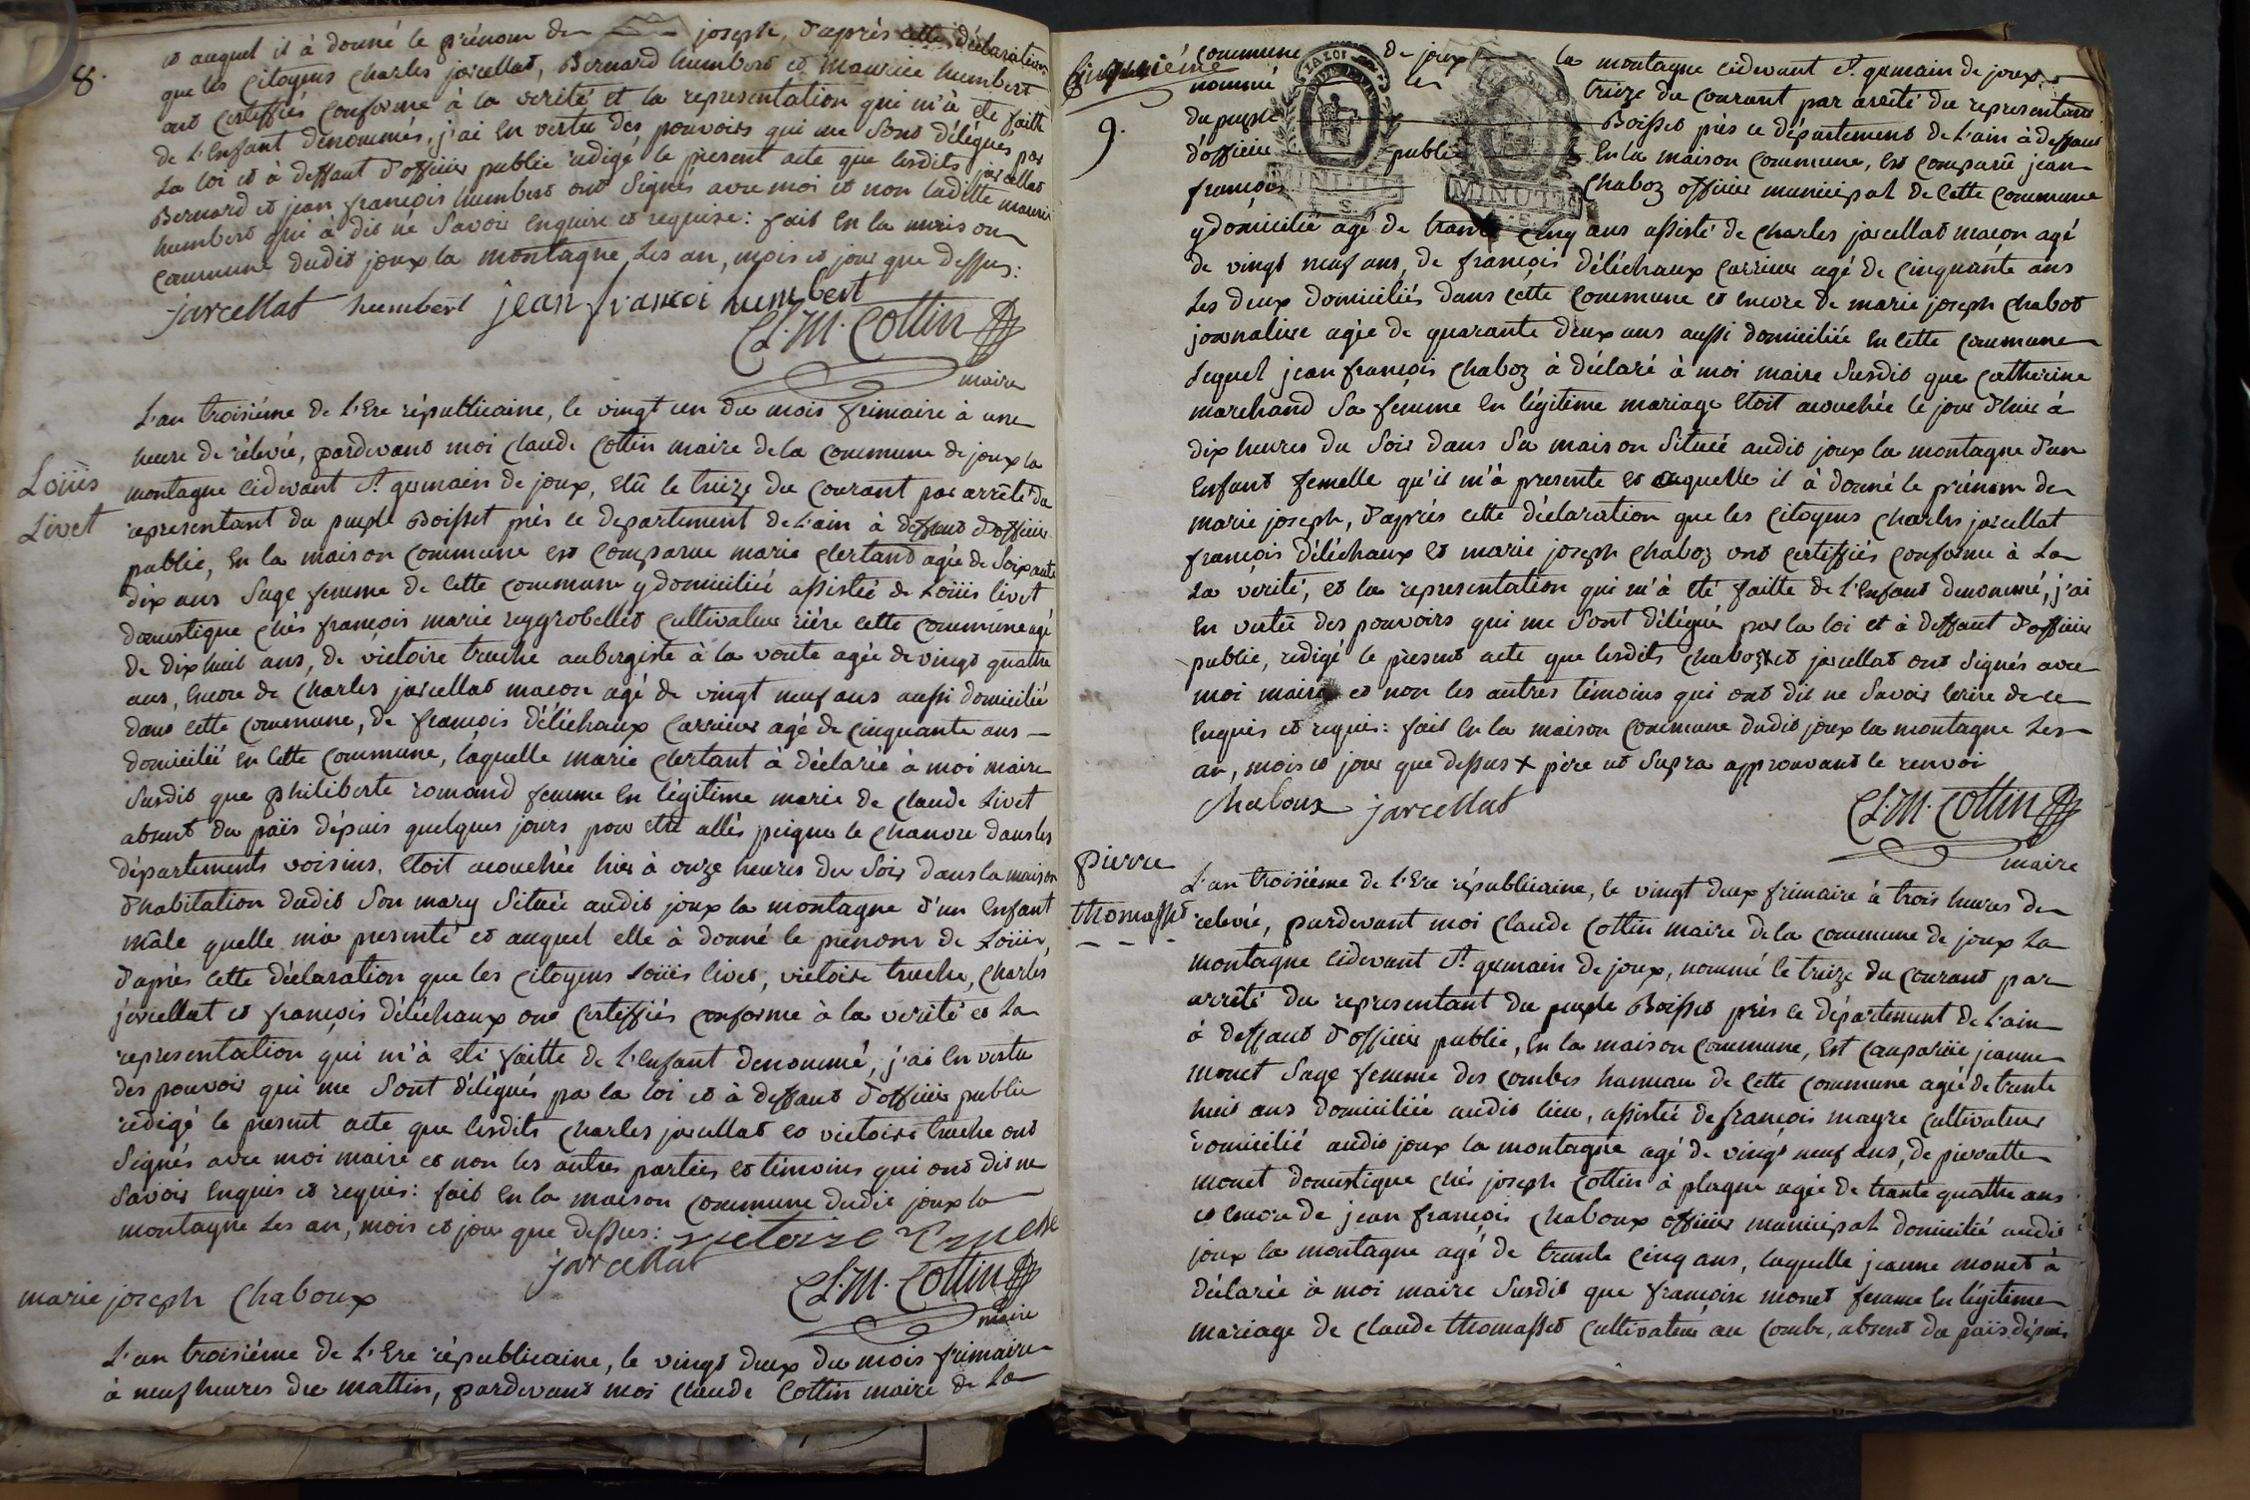 8.
et auquel il à donné le prénom de joseph, d'après cette déclaration
que les Citoyens Charles jarcellat, Bernard humbert et maurice humbert
ont certiffiés conforme à la verité et la representation qui m'à été faitte
de l'Enfant dénommés, j'ai En vertu des pouvoirs qui me sont délégués par
la loi et à deffaut d'officier public redigé le présent acte que lesdits jarcellat
Bernard et jean françois humbert ont signés avec moi et non ladite maurice
humbert qui à dit né savoir Enquise et requise : fait En la maison
Commune dudit joux la montagne, les an, mois et jour que dessus :
jarcellat humbert jean francoi humbert
Cl. M. Cottin
maire
Loüis
Livet
L'an troisiéme de l'Ere républicaine, le vingt un du mois frimaire à une
heure de rélévée, pardevant moi Claude Cottin maire de la Commune de joux la
montagne cidevant St germain de joux, Elû le treize du Courant par arrêté du
representant du peuple Boisset près ce departement de l'ain à deffaut d'officier
public, En la maison Commune est Comparue marie Clertand agée de soixante
dix ans sage femme de cette Commune y domiciliée assistée de Loüis livet
domestique chés françois marie reygrobellet Cultivateur riére cette Commune agé
de dixhuit ans, de victoire truche aubergiste à la voute agée de vingt quattre
ans, Encore de Charles jarcellat macon agé de vingt neuf ans aussi domicilié
dans cette Commune, de françois déléchaux Carrieur agé de Cinquante ans
domicilié En Cette Commune, laquelle marie Clertant à déclarée à moi maire
susdit que philiberte romand femme En légitime marie de Claude Livet
absent du païs dépuis quelques jours pour être allés peigner le Chanvre dans les
départements voisins, Etoit acouchée hier à onze heures du soir dans la maison
d'habitation dudit son mary située audit joux la montagne d'un Enfant
mâle quelle m'a presenté et auquel elle à donné le prénom de Loüis,
d'après cette déclaration que les Citoyens Loüis livet, victoire truche, Charles
jarcellat et françois déléchaux ont certiffiés conforme à la verité et la
representation qui m'à eté faitte de l'Enfant denommé, j'ai En vertu
des pouvoir qui me sont délégués par la loi et à deffaut d'officier public
redigé le present acte que lesdits Charles jarcellat et victoire truche ont
signés avec moi maire et non les autres parties et témoins qui ont dit ne
savoir Enquis et requis : fait En la maison Commune dudit joux la
montagne les an, mois et jour que dessus : victoire Truche
jarcellat
Cl. M. Cottin
maire
marie joseph Chaboux
L'an troisiéme de l'Ere républicaine, le vingt deux du mois frimaire
à neuf heures du mattin, pardevant moi Claude Cottin maire de la
Cinquiéme
9.
Commune de joux la montagne cidevant St germain de joux,
nommé le treize du courant par arrêté du representant
du peuple Boisset près ce département de l'ain à deffaut
d'officier public En la maison Commune, est comparû jean
françois Chaboz officier municipal de cette Commune
MINUTE
S.
MINUTE
S.
y domicilié agé de trante Cinq ans assisté de Charles jarcellat macon agé
de vingt neuf ans, de françois déléchaux Carrieur agé de Cinquante ans
les deux domiciliés dans cette Commune et Encore de marie joseph Chabot
journaliere agée de quarante deux ans aussi domiciliée En Cette Commune
lequel jean françois Chaboz à déclaré à moi maire susdit que Catherine
marchand sa femme En légitime mariage Etoit acouchée le jour d'hier à
dix heures du soir dans sa maison située audit joux la montagne d'un
Enfant femelle qu'il m'à presente et auquelle il à donné le prénom de
marie joseph, d'après cette déclaration que les Citoyens Charles jarcellat
françois déléchaux et marie joseph Chaboz ont certiffiés conforme à la
la vérité, et la representation qui m'à eté faitte de l'Enfant denommé, j'ai
En vertu des pouvoirs qui me sont délégués par la loi et à deffaut d'officier
public, redigé le present acte que lesdits Chaboz x et jarcellat ont signés avec
moi maire et non les autres témoins qui ont dit ne savoir Ecrire de ce
Enquis et requis : fait En la maison Commune dudit joux la montagne les
an, mois et jour que dessus x père ut supra approuvant le renvoi
Chaboux jarcellat
Cl. M. Cottin
maire
pierre
thomasset
L'an troisiéme de l'Ere républicaine, le vingt deux frimaire à trois heures de
relevée, pardevant moi Claude Cottin maire de la Commune de joux la
montagne cidevant St germain de joux, nommé le treize du courant par
arrêté du representant du peuple Boisset près ce département de l'ain
à deffaut d'officier public, En la maison Commune, Est Comparüe jeanne
monet sage femme des Combes hameau de cette Commune agée de trente
huit ans domiciliée audit lieu, assistée de françois mayre Cultivateur
domicilié audit joux la montagne agé de vingt neuf ans, de pierrette
monet domestique chés joseph Cottin à plagne agée de trante quattre ans
et encore de jean françois Chaboux officier municipal domicilié audit
joux la montagne agé de trante Cinq ans, laquelle jeanne monet à
déclarée à moi maire susdit que françoise monet femme En légitime
mariage de Claude thomasset Cultivateur au Combe, absent du païs dépuis